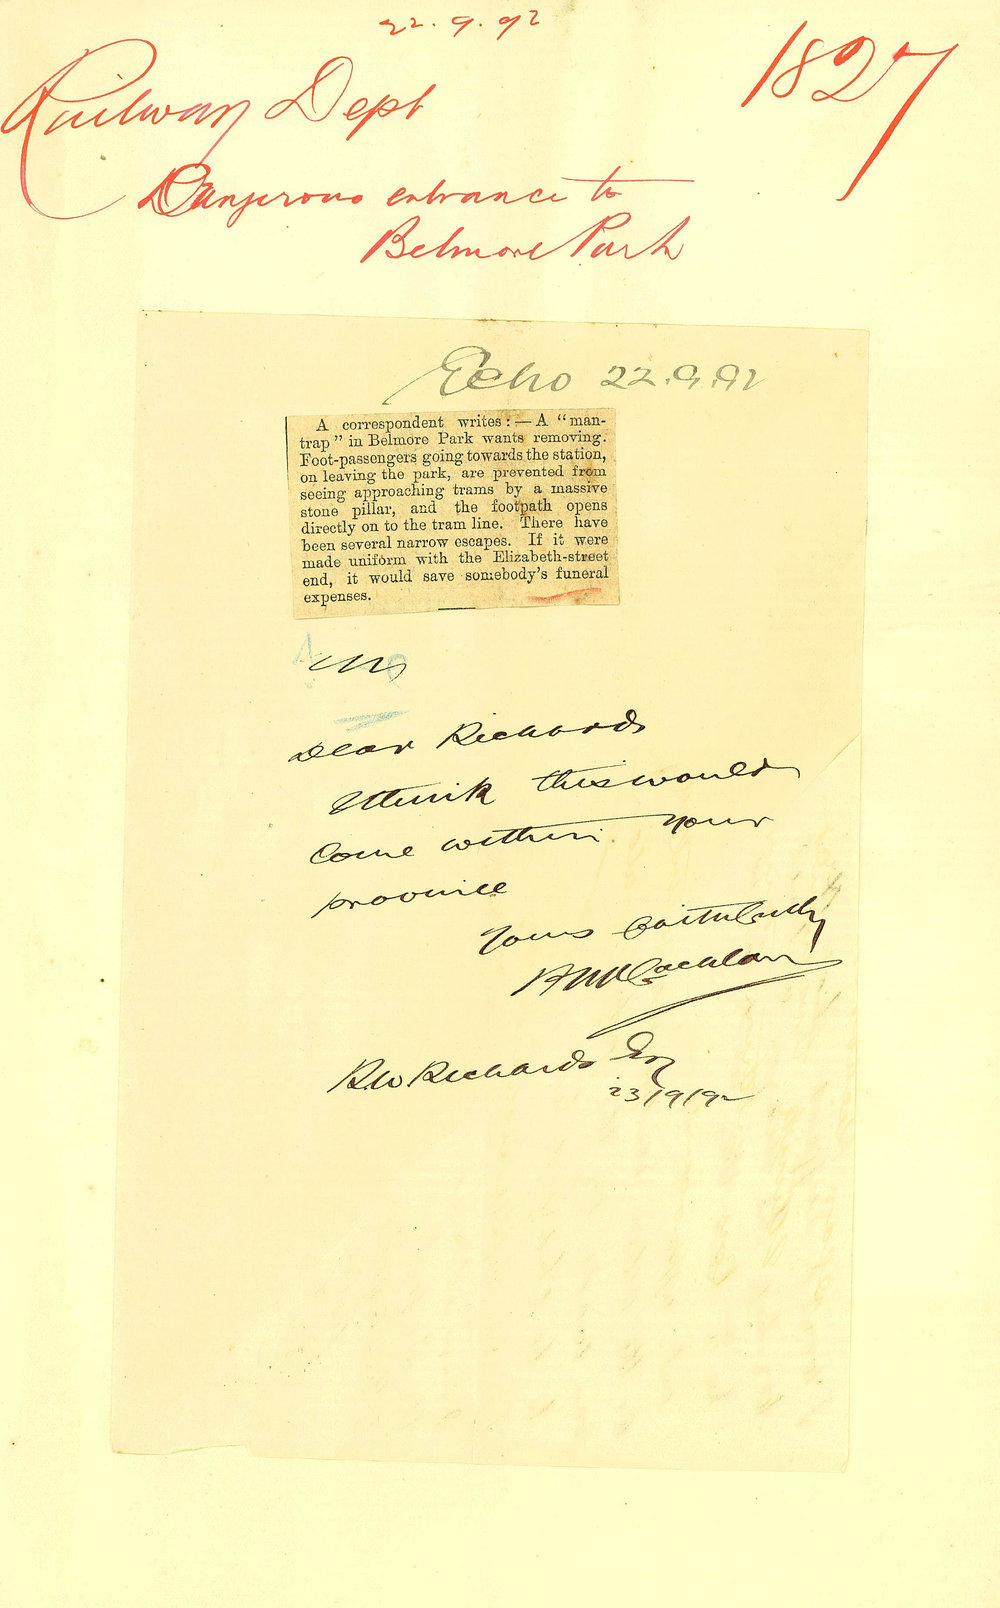 22.9.92
1827
Railway Dept
Dangerous entrance to
Belmore Park
Echo 22.9.92
A correspondent writes:—A "man-
trap" in Belmore Park wants removing.
Foot-passengers going towards the station,
on leaving the park, are prevented from
seeing approaching trams by a massive
stone pillar, and the footpath opens
directly on to the tram line. There have
been several narrow escapes. If it were
made uniform with the Elizabeth-street
end, it would save somebody's funeral
expenses.
Dear Richards
I think this would
come within your
province
Yours faithfully
H McLachlan
R.W Richards Esq
23/9/92